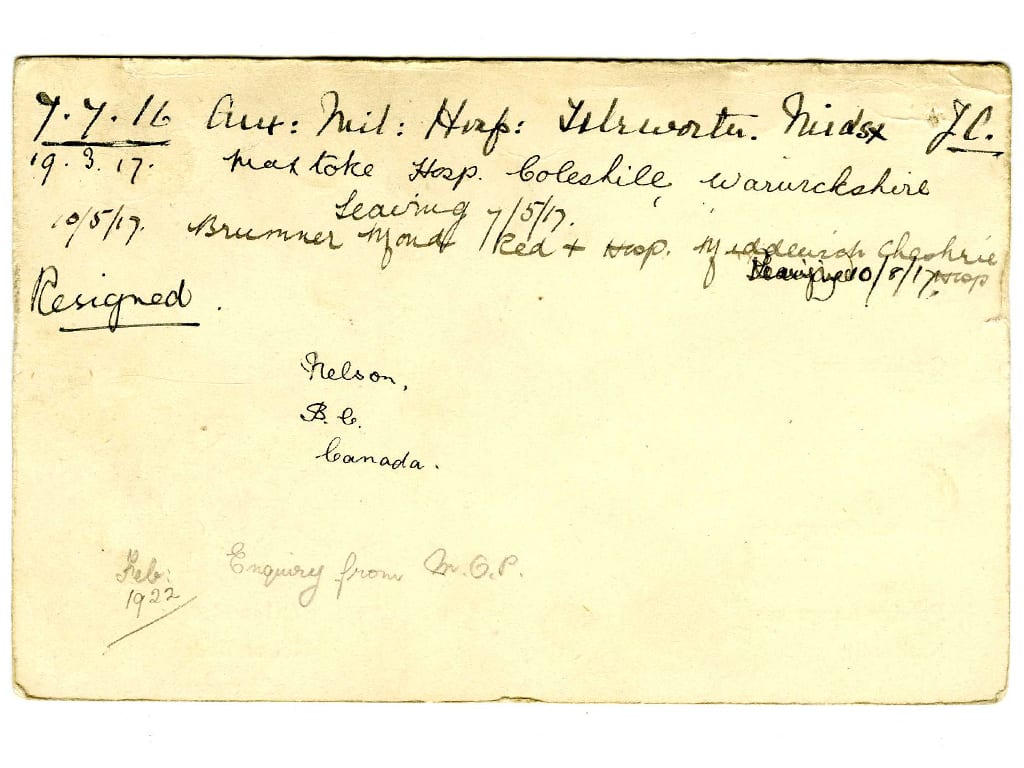 7.7.16 Aux: Mil: Hosp: Isleworth. Midsx J.C.
19.3.17. Maxtoke Hosp. Coleshill, Warwickshire
Leaving 7/5/17.
10/5/17. Brunner Mond Red + Hosp. Middewich Cheshire
Leaving 10/8/17. Hosp
Resigned.
Nelson,
B.C.
Canada.
Feb: Enquiry from M.O.P.
1922